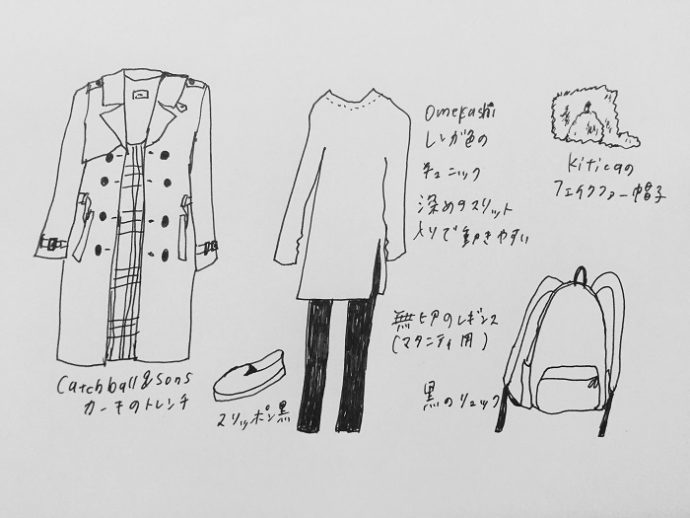 Catchball & sons
カーキのトレンチ
スリッポン黒
Omekashi
レンガ色の
チュニック
深めのスリット
入りで動きやすい
無ヒアのレギンス
(マタニティ用)
黒のリュック
Kiticaの
フェイクファー帽子